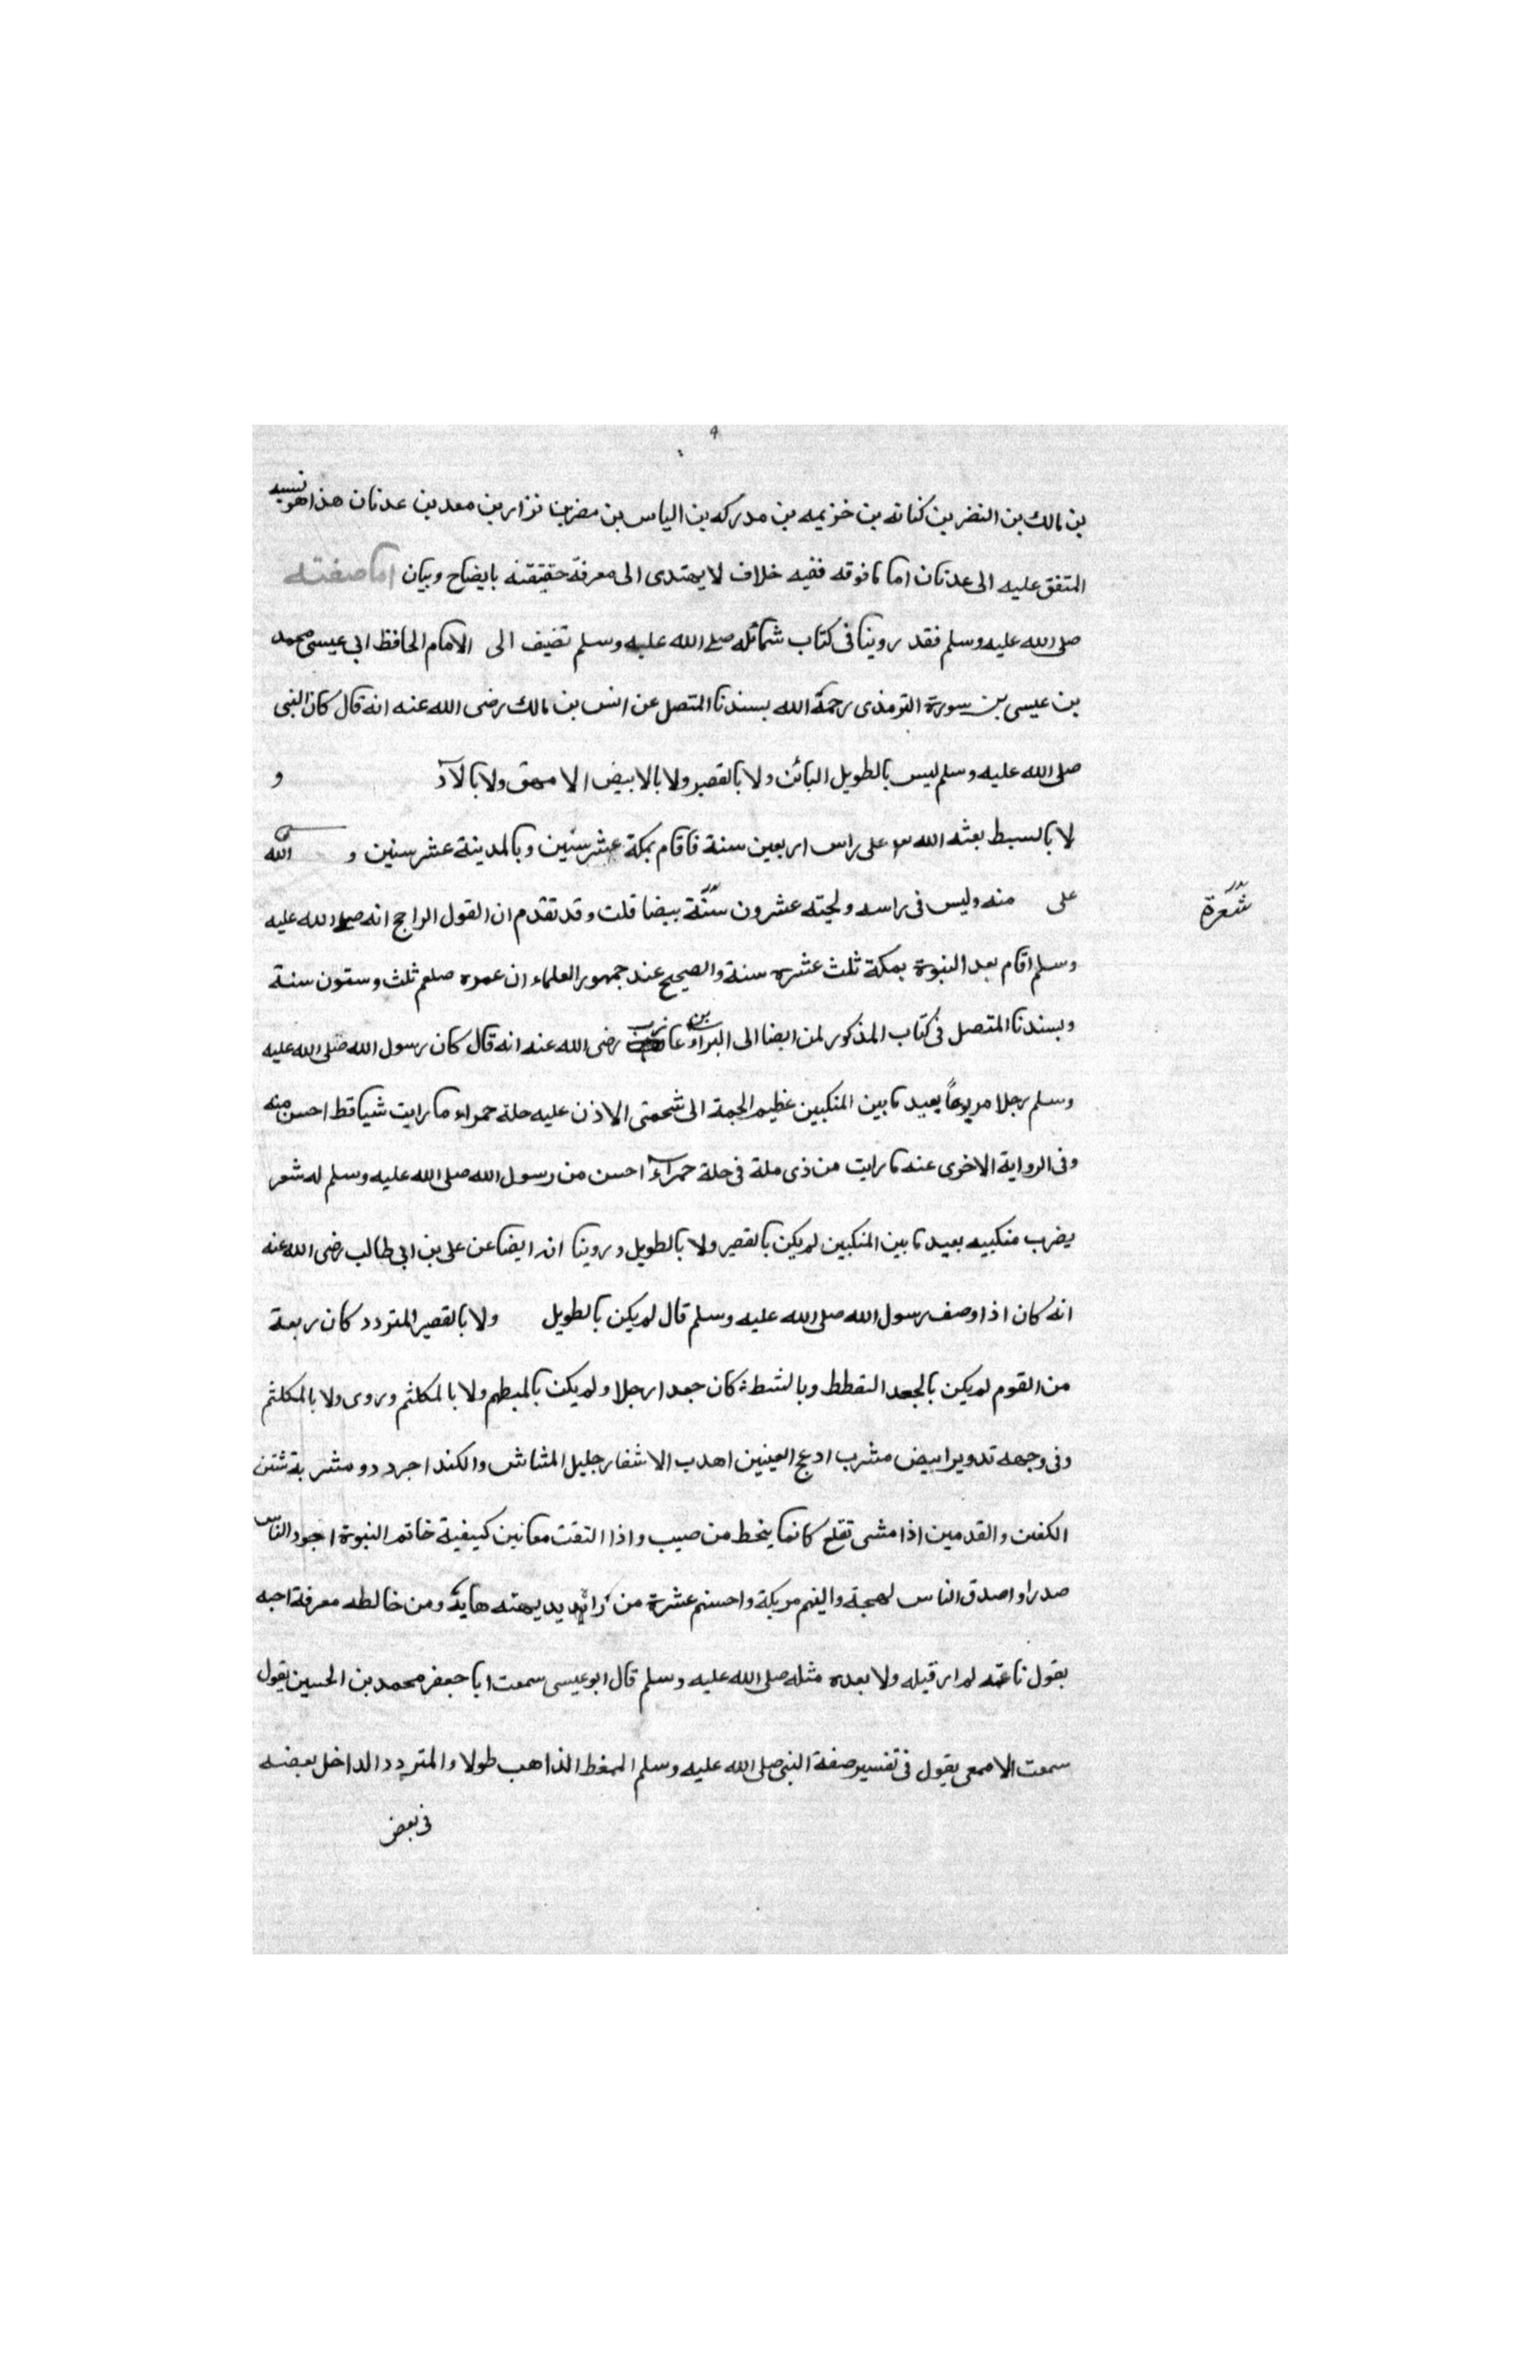 ٩
بن مالك بن النضر بن كنانه بن خزيمه بن مدركه بن الياس بن مضر بن نزار بن معد بن عدنان هذا هو نسبه
المتفق عليه الى عدنان اما ما فوقه ففيه خلاف لا يهتدى الى معرفة حقيقته بايضاح وبيان اما صفته
صلى الله عليه وسلم فقد روينا فى كتاب شمائله صلى الله عليه وسلم تضيف الى الامام الحافظ ابى عيسى محمد
بن عيسى بن سورة الترمذى رحمة الله بسندنا المتصل عن انس بن مالك رضى الله عنه انه قال كان النبى
صلى الله عليه وسلم ليس بالطويل البائن ولا بالقصير ولا بالابيض الامهق ولا بالآد و
لا بالسبط بعثه الله على راس اربعين سنة فاقام بمكة عشر سنين وبالمدينة عشر سنين و الله
على منه وليس فى راسه ولحيته عشرون بيضا قلت وقد تقدم ان القول الراجح انه صلى الله عليه
شعرة
وسلم اقام بعد النبوة بمكة ثلث عشره سنة والصحيح عند جمهور العلماء ان عمره صلعم ثلث وستون سنة
وبسندنا المتصل فى كتاب المذكور لمن ايضا الى البراء بن عازب رضى الله عنه انه قال كان رسول الله صلى الله عليه
وسلم رجلا مربوعاً بعيد ما بين المنكبين عظيم الجمة الى شحمتى الاذن عليه حلة حمراء ما رايت شيا قط احسن منه
وفى الرواية الاخرى عنه ما رايت من ذى ملة فى حلة حمراء احسن من رسول الله صلى الله عليه وسلم له شعر
يضرب منكبيه بعيد ما بين المنكبين لم يكن بالقصير ولا بالطويل وروينا ايضا عن على بن ابى طالب رضى الله عنه
انه كان اذا وصف رسول الله صلى الله عليه وسلم قال لم يكن بالطويل ولا بالقصير المتردد كان ربعة
من القوم لم يكن بالجعد القطط وبالشط كان جعدا رجلا ولم يكن بالمطهم ولا بالمكلثم وروى ولا بالمكلثم
وفى وجهه تدوير ابيض مشرب ادعج العينين اهدب الاشفار جليل المشاش والكند اجرد دو مشربة شثن
الكفين والقدمين اذا مشى تقلع كانما ينحط من صبب واذا التفت معا بين كيفية خاتم النبوة اجود الناس
صدرا واصدق الناس لهجة والينهم عريكة واحسنهم عشرة من راه يديهته هابه ومن خالطه معرفة احبه
يقول ناعته لم ار قبله ولا بعده مثله صلى الله عليه وسلم قال ابو عيسى سمعت ابا جعفر محمد بن الحسين يقول
سمعت الاصمعى يقول فى تفسير صفة النبى صلى الله عليه وسلم الممغط الذاهب طولا والمتردد الداخل بعضه
فى بعض